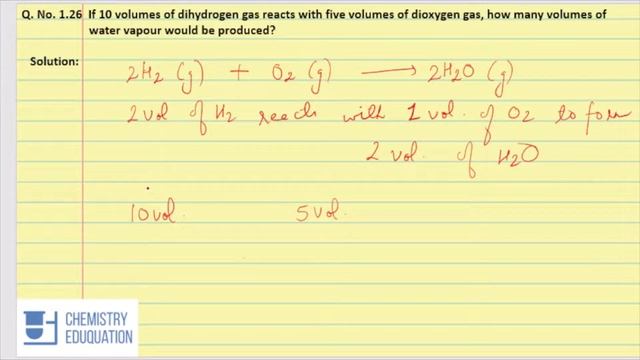 Q. No. 1.26 If 10 volumes of dihydrogen gas reacts with five volumes of dioxygen gas, how many volumes of
water vapour would be produced?
Solution:
2H₂ (g) + O₂ (g) ⟶ 2H₂O (g)
2 vol of H₂ reacts with 1 vol. of O₂ to form
2 vol. of H₂O
10 vol. 5 vol.
CHEMISTRY
EDUQUATION